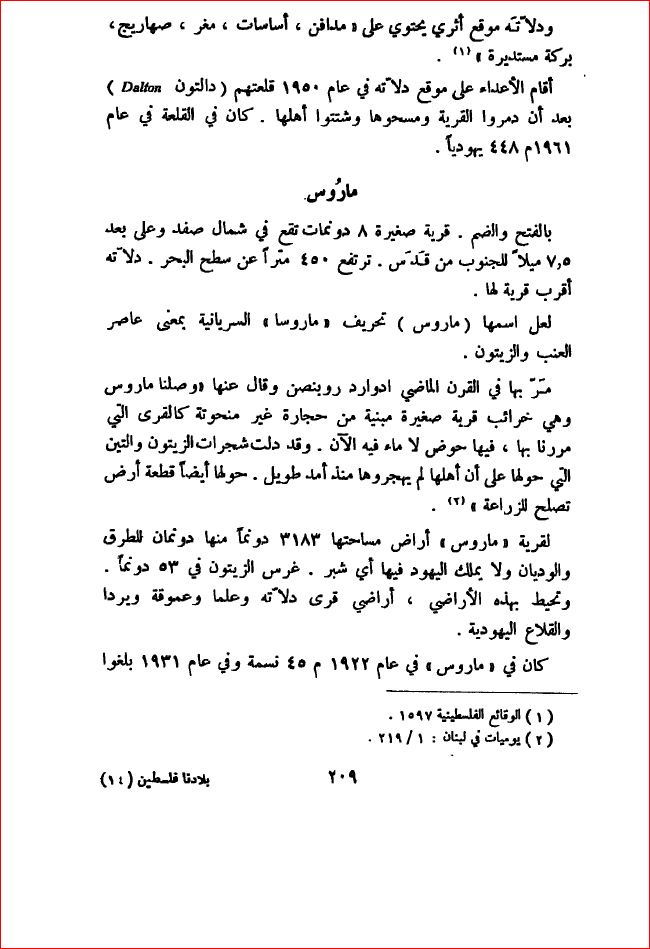 ودلاّتَه موقع أثري يحتوي على « مدافن ، أساسات ، مغر ، صهاريج،
بركة مستديرة » (١) .
أقام الأعداء على موقع دلاّته في عام ١٩٥٠ قلعتهم ( دالتون Dalton )
بعد أن دمروا القرية ومسحوها وشتتوا أهلها . كان في القلعة في عام
١٩٦١م ٤٤٨ يهودياً .
مارُوس
بالفتح والضم . قرية صغيرة ٨ دونمات تقع في شمال صفد وعلى بعد
٧,٥ ميلاً للجنوب من قَدَس . ترتفع ٤٥٠ متراً عن سطح البحر . دلاّته
أقرب قرية لها .
لعل اسمها ( ماروس ) تحريف « ماروسا » السريانية بمعنى عاصر
العنب والزيتون .
مَرّ بها في القرن الماضي ادوارد روبنصن وقال عنها «وصلنا ماروس
وهي خرائب قرية صغيرة مبنية من حجارة غير منحوتة كالقرى التي
مررنا بها ، فيها حوض لا ماء فيه الآن . وقد دلت شجرات الزيتون والتين
التي حولها على أن أهلها لم يهجروها منذ أمد طويل . حولها أيضاً قطعة أرض
تصلح للزراعة » (٢) .
لقرية « ماروس » أراض مساحتها ٣١٨٣ دونماً منها دونمان للطرق
والوديان ولا يملك اليهود فيها أي شبر . غرس الزيتون في ٥٣ دونماً .
وتحيط بهذه الأراضي ، أراضي قرى دلاّته وعلما وعموقة ويردا
والقلاع اليهودية .
كان في « ماروس » في عام ١٩٢٢ م ٤٥ نسمة وفي عام ١٩٣١ بلغوا
( ١ ) الوقائع الفلسطينية ١٥٩٧ .
( ٢ ) يوميات في لبنان : ١ / ٢١٩ .
٢٠٩
بلادنا فلسطين (١٤)